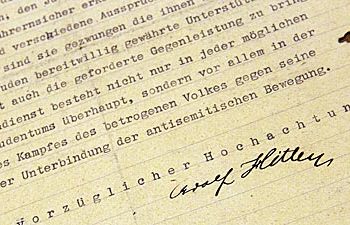 n, den Je
ahrensicher er
d verschiedene Aussprüc
sind sie gezwungen die ihnen
uden bereitwillig gewährte Unterstütz
t auch die geforderte Gegenleistung zu bring
dienst besteht nicht nur in Jeder möglichen
udentums überhaupt, sondern vor allem in der
es Kampfes des betrogenen Volkes gegen seine
er Unterbindung der antisemitischen Bewegung.
Vorzüglicher Hochachtun
Adolf Hitler